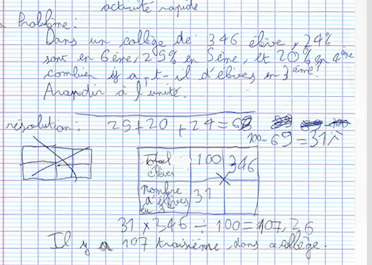 activité rapide
Problème:
Dans un collège de 346 élève, 24%
sont en 6ème, 25% en 5ème, et 20% en 4ème
combien y a-t-il d'élèves en 3ème?
Arondir à l'unité.
résolution. 25+20+24=69
100-69=31%
total élèves 100 346
nombre d'élèves 31
31 x 346 ÷ 100=107,26
Il y a 107 troisième, dans ce collège.